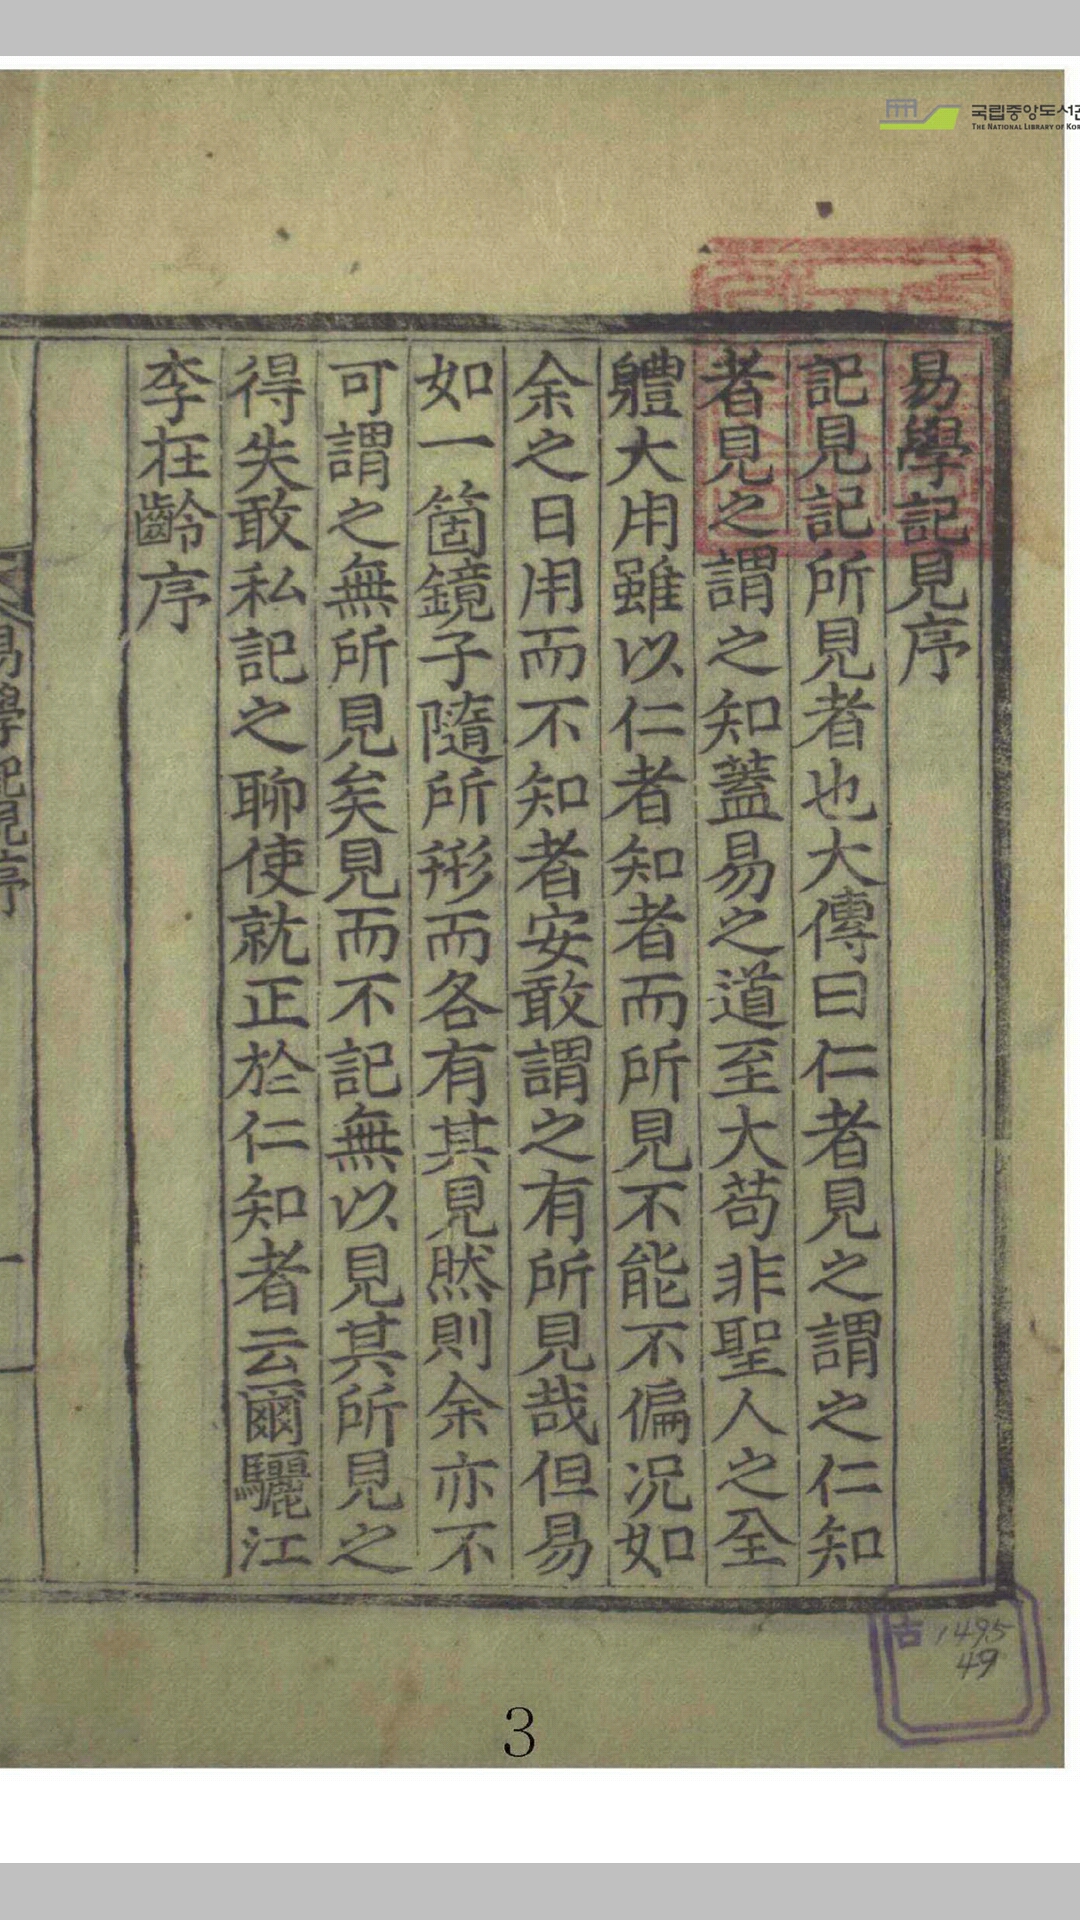 국립중앙도서관
THE NATIONAL LIBRARY OF KOR
易學記見序
記見記所見者也大傳曰仁者見之謂之仁知
者見之謂之知蓋易之道至大苟非聖人之全
軆大用雖以仁者知者而所見不能不偏况如
余之日用而不知者安敢謂之有所見哉但易
如一箇鏡子隨所形而各有其見然則余亦不
可謂之無所見矣見而不記無以見其所見之
得失敢私記之聊使就正於仁知者云爾驪江
李在齡序
易學記見序
一
古 1495
49
3